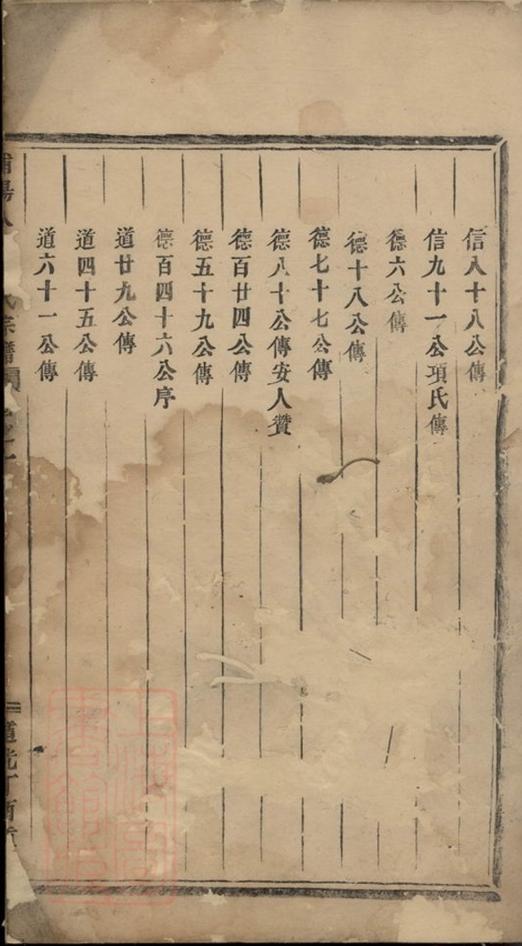 信八十八公傳
信九十一公項氏傳
德六公傳
德十八公傳
德七十七公傳
德八十公傳安人贊
德百廿四公傳
德五十九公傳
德百四十六公序
道廿九公傳
道四十五公傳
道六十一公傳
氏宗譜
道光丁酉